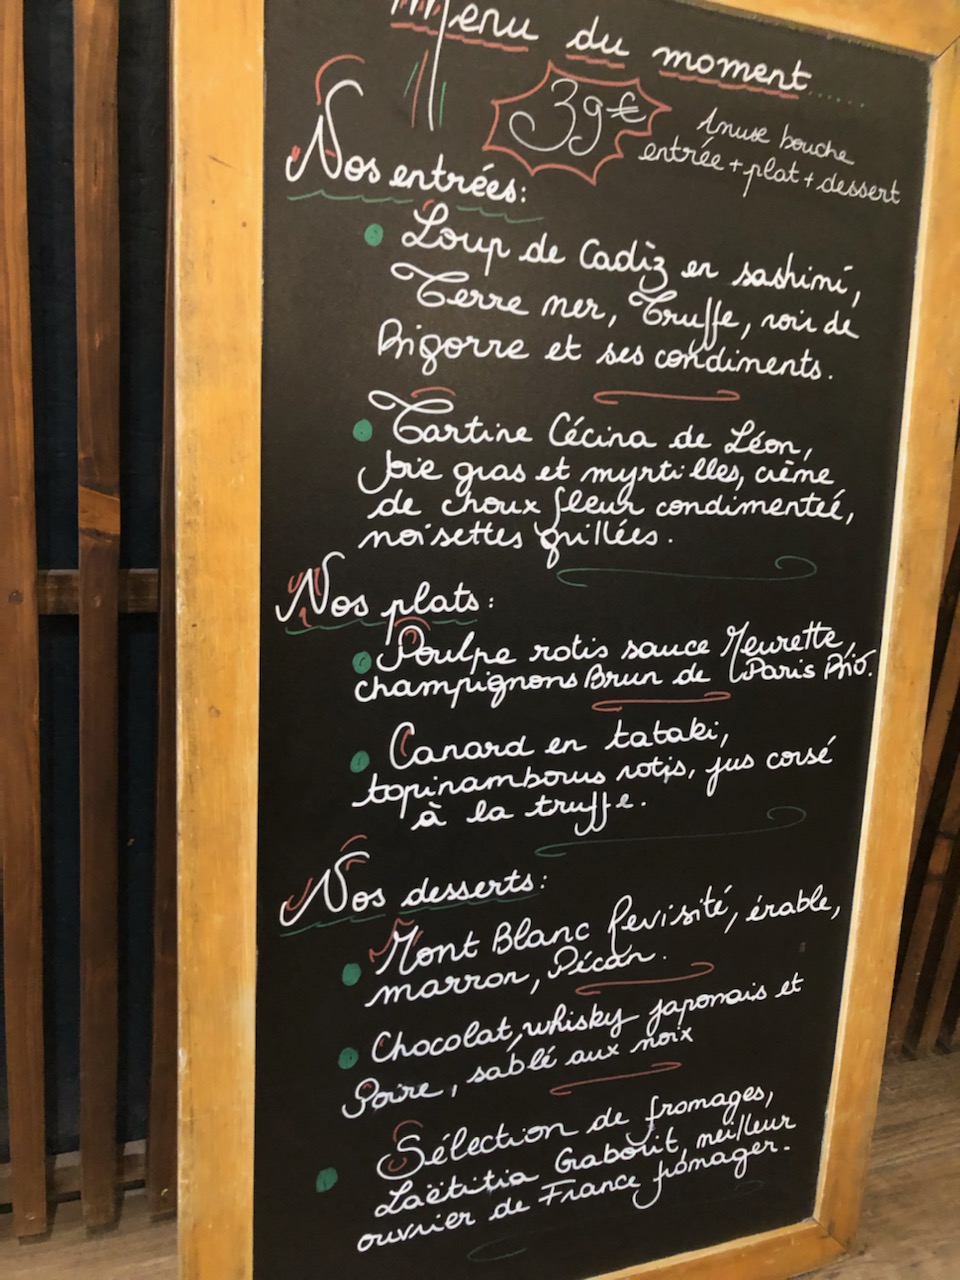 Menu du moment......
39€
Amuse bouche
entrée + plat + dessert
Nos entrées:
Loup de Cadiz en sashimi,
Terre mer, Truffe, noir de
Bigorre et ses condiments.
Tartine Cécina de Léon,
foie gras et myrtilles, crème
de choux fleur condimenteé,
noisettes grillées.
Nos plats:
Poulpe rotis sauce Meurette,
champignons Brun de Paris Bio.
Canard en tataki,
topinambours rotis, jus corsé
à la truffe.
Nos desserts:
Mont Blanc Revisité, érable,
marron, Pécan.
Chocolat, whisky japonais et
Poire, sablé aux noix
Sélection de fromages,
Laëtitia Gaborit, meilleur
ouvrier de France fromager.